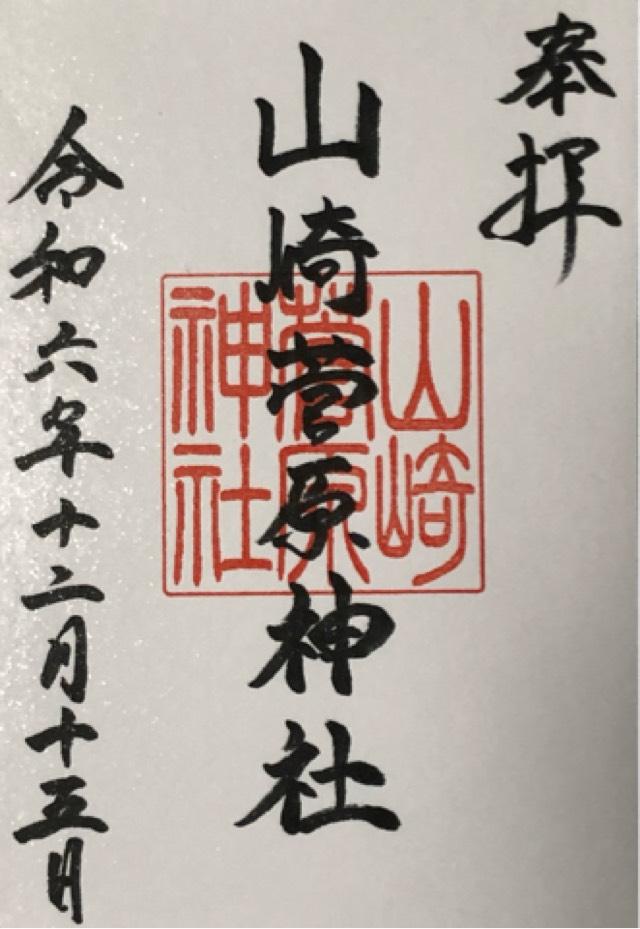 奉拝
山崎菅原神社
山崎
菅原
神社
令和六年十二月十五日